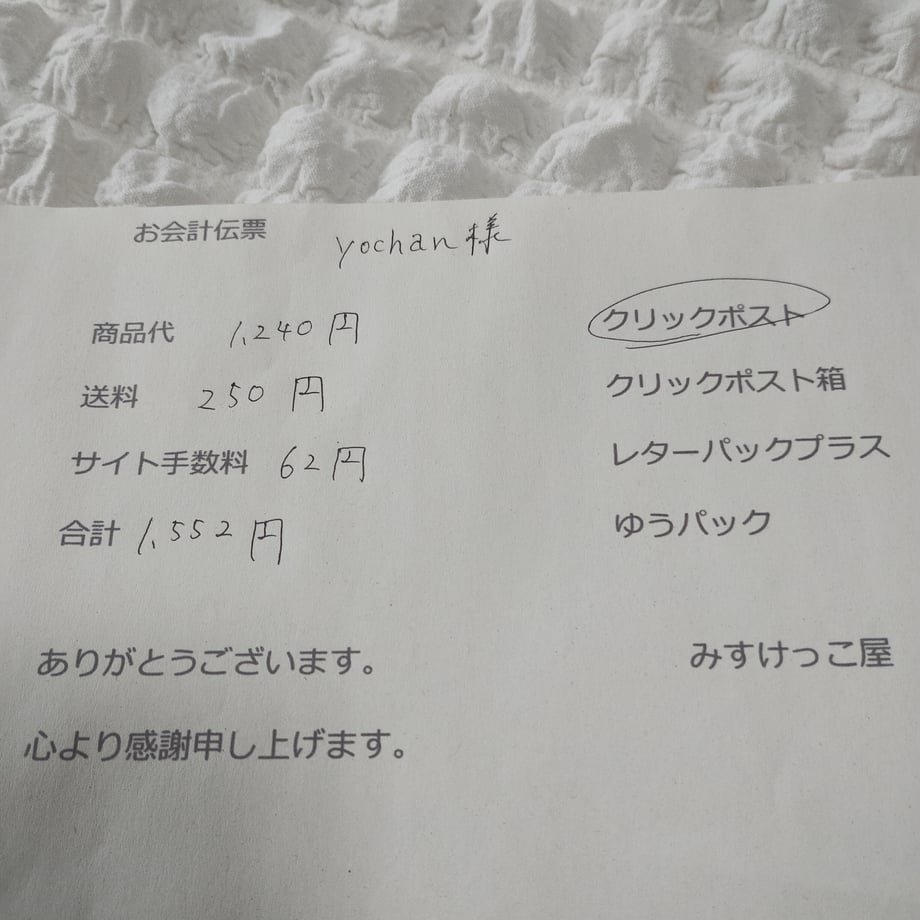 お会計伝票 yochan様
商品代 1,240円
送料 250円
サイト手数料 62円
合計 1,552円
クリックポスト
クリックポスト箱
レターパックプラス
ゆうパック
ありがとうございます。
心より感謝申し上げます。
みすけっこ屋